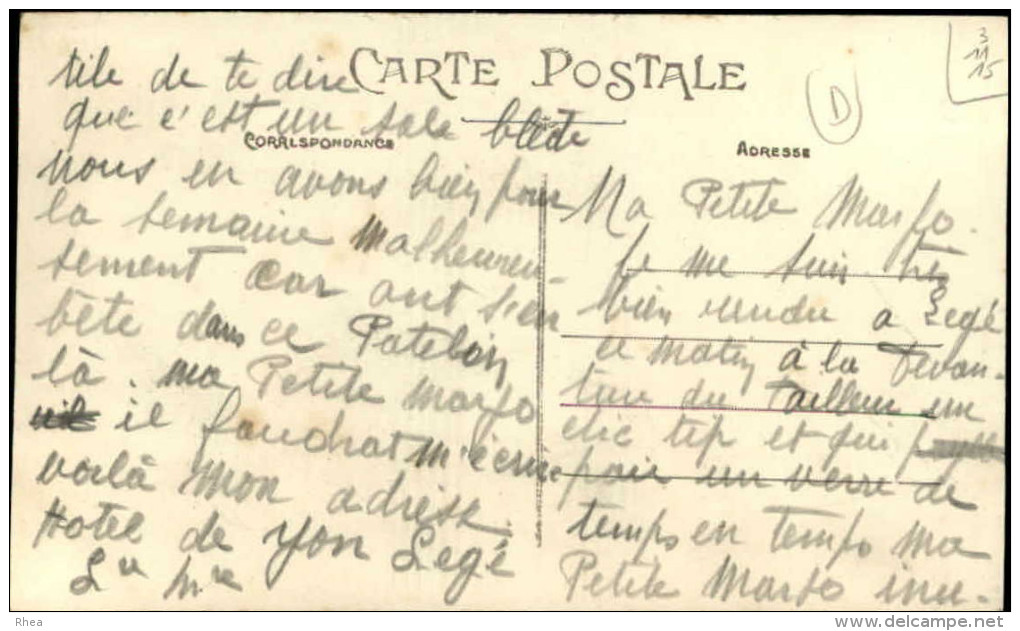 CARTE POSTALE
CORRESPONDANCE
ADRESSE
D
3
11
15
Ma Petite Marfo.
Je me suis très
bien rendu a Legé
ce matin à la devan-
ture du Tailleur un
chic tip et qui
paie un verre de
temps en temps ma
Petite Marfo inu-
tile de te dire
que c'est un sale
nous en avons bien pour
la semaine malheureu-
sement car ont s'en
bête dans ce Patelin
là. ma Petite Marfo
il faudrat m'écrire
voilà mon adresse.
Hotel de Yon Legé
Lre Inre
Rhea
www.delcampe.net